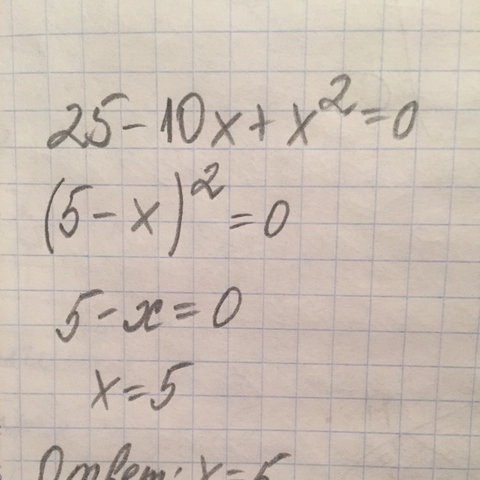 25-10x+x²=0
(5-x)²=0
5-x=0
x=5
Ответ: x=5